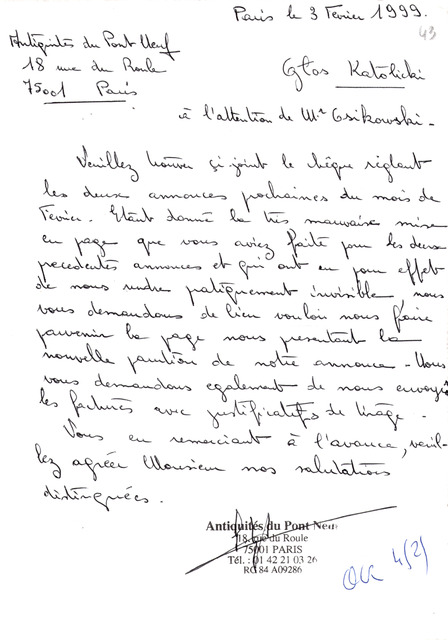 Paris le 3 Fevrier 1999.
43
Antiquités du Pont Neuf
18 rue du Roule
75001 Paris
Głos Katolicki
à l'attention de Mr Osikowski -
Veuillez trouver çi joint le chèque réglant
les deux annonces prochaines du mois de
Fevrier. Etant donné la très mauvaise mise
en page que vous aviez faite pour les deux
precedentes annonces et qui ont eu pour effet
de nous rendre pratiquement invisible, nous
vous demandons de bien vouloir nous faire
parvenir la page nous presentant la
nouvelle parution de notre annonce - Nous
vous demandons egalement de nous envoyer
les factures avec justificatifs de tirage.
Vous en remerciant à l'avance, veuil-
lez agréer Monsieur nos salutations
distinguées.
Antiquités du Pont Neuf
18, rue du Roule
75001 PARIS
Tél. : 01 42 21 03 26
RC 84 A09286
4/2)